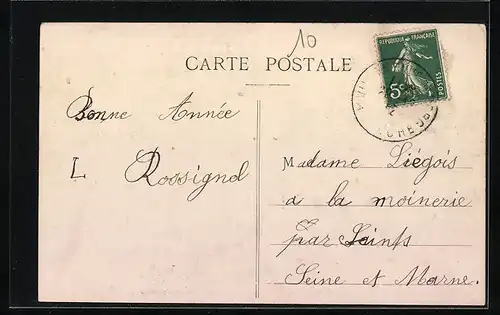 10
CARTE POSTALE
REPUBLIQUE FRANÇAISE
5c
POSTES
Bonne Année
L Rossignol
Madame Liégois
a la moinerie
par Saints
Seine et Marne.